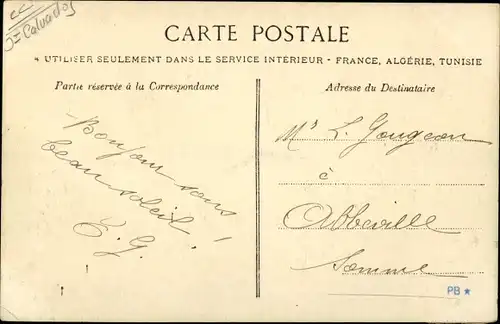 cc
J= Calvados
CARTE POSTALE
A UTILISER SEULEMENT DANS LE SERVICE INTÉRIEUR - FRANCE, ALGÉRIE, TUNISIE
Partie réservée à la Correspondance
Adresse du Destinataire
Bonjour sous
beau soleil !
L. G.
Mr L. Gougeon
à
Abbeville
Somme
PB ★